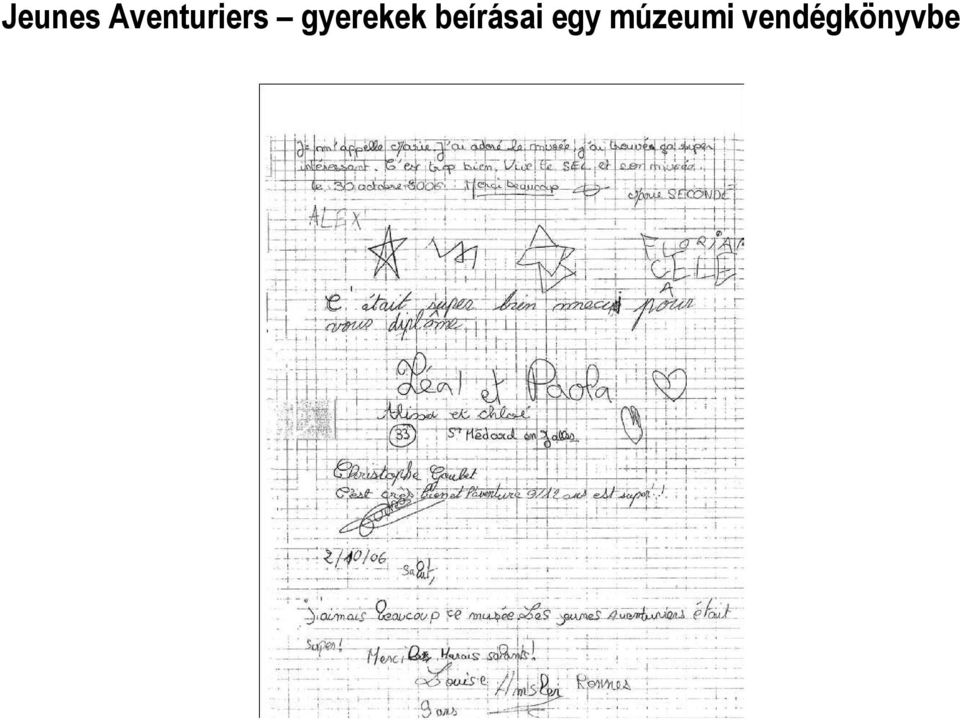 Jeunes Aventuriers – gyerekek beírásai egy múzeumi vendégkönyvbe
Je m'appelle Marie. J'ai adoré le musée, j'ai trouvée ça super
intéressant. C'est trop bien. Vive le SEL et son musée.
le 30 octobre 2006. Merci beaucoup
Marie SECONDÉ
ALEX
FLORIAN
CELE
C'était super bien pour
vous diplôme.
Léa et Paola
Alissa et chloé
33 St Médard en Jalles
Christophe Goulet
C'est très bien et l'aventure 9/12 ans est super !
2/10/06
Salut,
J'aimais beaucoup ce musée. Les jeunes Aventuriers était
super!
Merci Les Marais salants!
Louise Amsler Rennes
9 ans